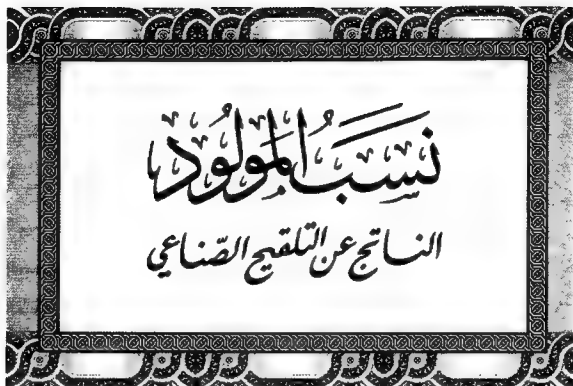 نَسَبُ المَولُود
الناتج عن التلقيح الصّناعي